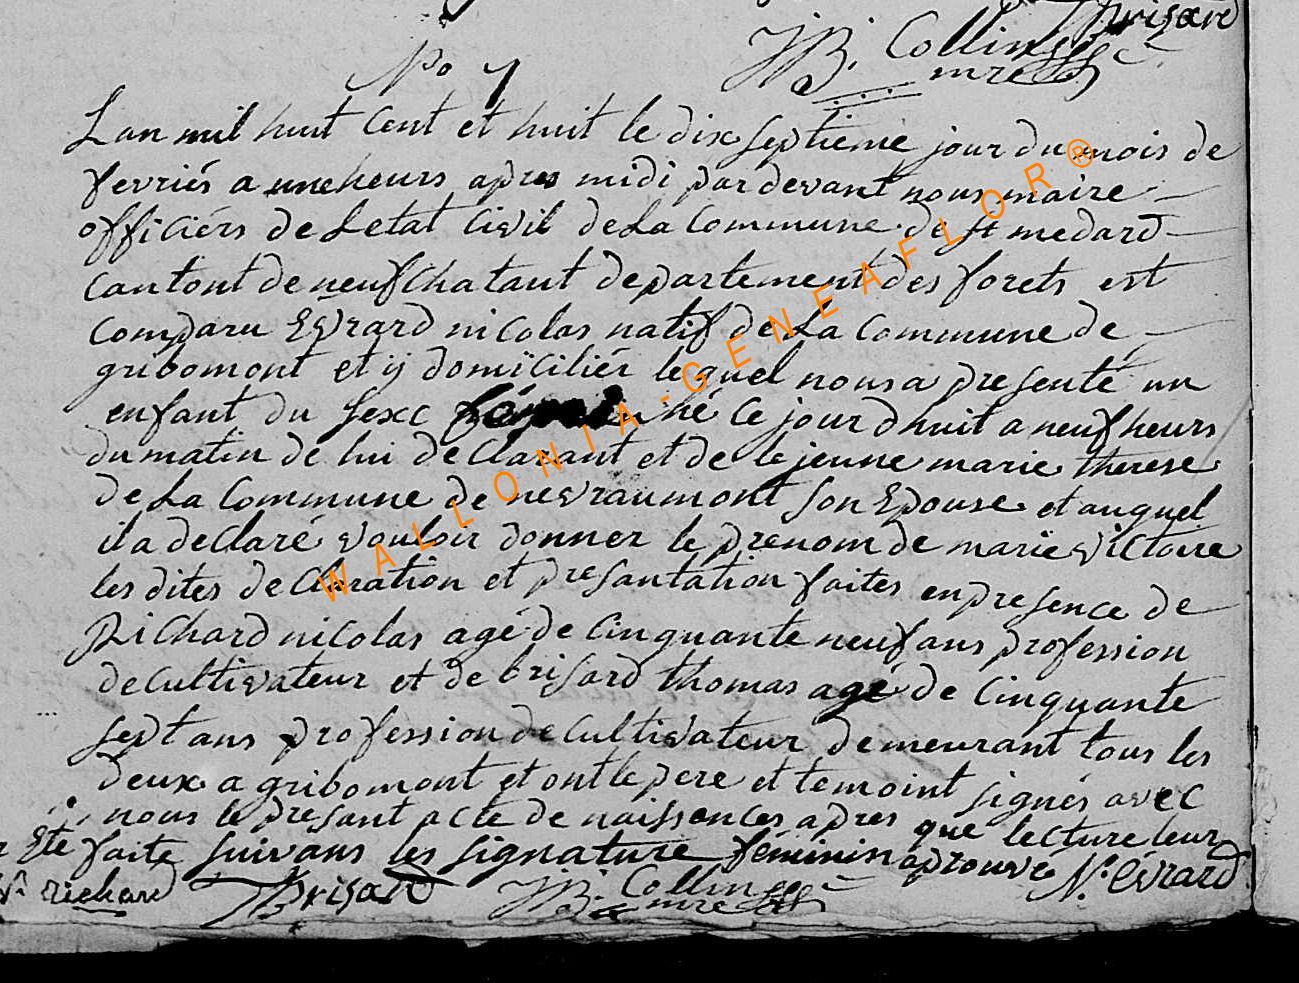 Brisard
JB. Collines
mre
No 7
Lan mil huit Cent et huit le dix septieme jour du mois de
fevriér a uneheurs apres midi pardevant nous maire
officiérs de Letat Civil de La Commune de St medard
Cantont de neufchatant departement des forets est
Comparu Evrard nicolas natif de La Commune de
gribomont et ij domiciliér lequel nous a presenté un
enfant du sexe né Ce jour dhuit a neuf heurs
du matin de lui declarant et de lejeune marie therese
de La Commune de nevraumont son Epouse et auquel
il a declaré vouloir donner le prenom de marie victoire
les dites declaration et presantation faites en presence de
Richard nicolas agé de Cinquante neuf ans profession
de cultivateur et de brisard thomas agé de Cinquante
sept ans profession de cultivateur demeurant tous les
deux a gribomont et ont le pere et temoint signés avec
nous le presant acte de naissences apres que lecture leur
Eté faite suivans les signature féminin aprouvé N. Evrard
richard Brisard JB. Collines
mre
WALLONIA-GENEAFLOR®